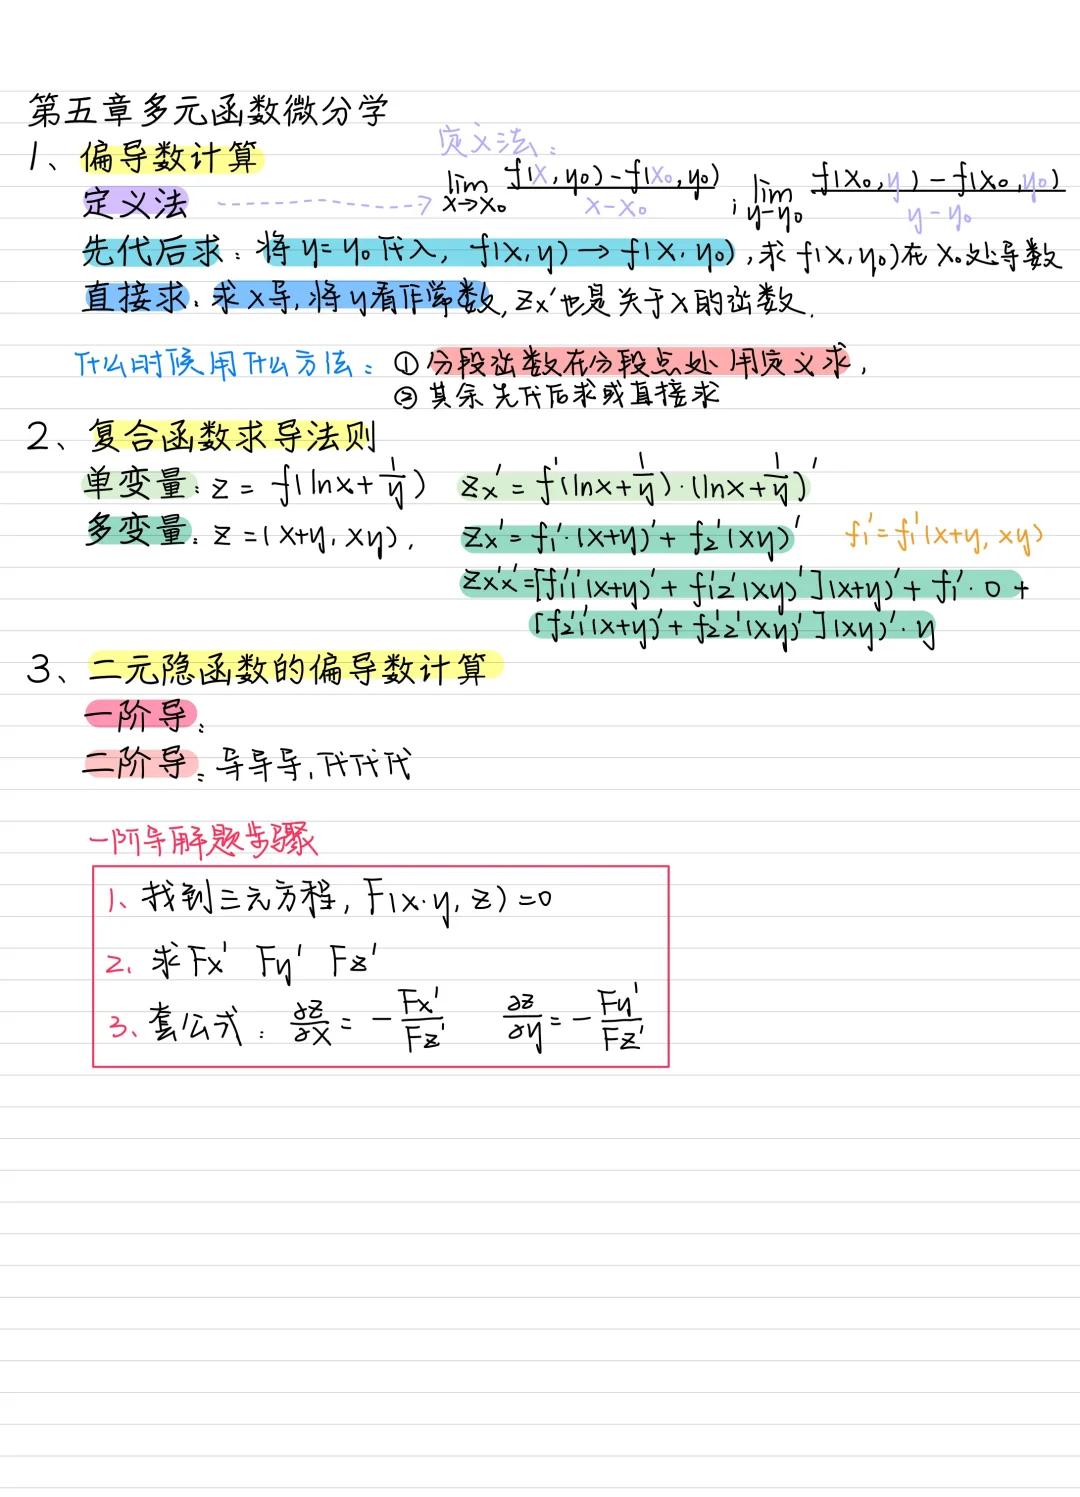 第五章多元函数微分学
1、偏导数计算
定义法：
定义法 ------> lim x→x₀ f(x,y₀)-f(x₀,y₀) / x-x₀ ; lim y-y₀ f(x₀,y)-f(x₀,y₀) / y-y₀
先代后求：将y=y₀代入, f(x,y)→f(x.y₀),求f(x,y₀)在x₀处导数
直接求：求x导,将y看作常数,Zx'也是关于x的函数.
什么时候用什么方法：①分段函数在分段点处用定义求,
②其余先代后求或直接求
2、复合函数求导法则
单变量：z=f(lnx+1/y) Zx'=f'(lnx+1/y)·(lnx+1/y)'
多变量：z=(x+y,xy), Zx'=f₁'·(x+y)'+f₂'(xy)' f₁'=f₁'(x+y,xy)
Zx'x'=[f₁'₁'(x+y)'+f₁'₂'(xy)'](x+y)'+f₁'·0+
[f₂'₁'(x+y)'+f₂'₂'(xy)'](xy)'·y
3、二元隐函数的偏导数计算
一阶导：
二阶导：导导导,代代代
一阶导解题步骤
1、找到三元方程,F(x.y,z)=0
2、求Fx' Fy' Fz'
3、套公式：∂z/∂x=-Fx'/Fz' ∂z/∂y=-Fy'/Fz'